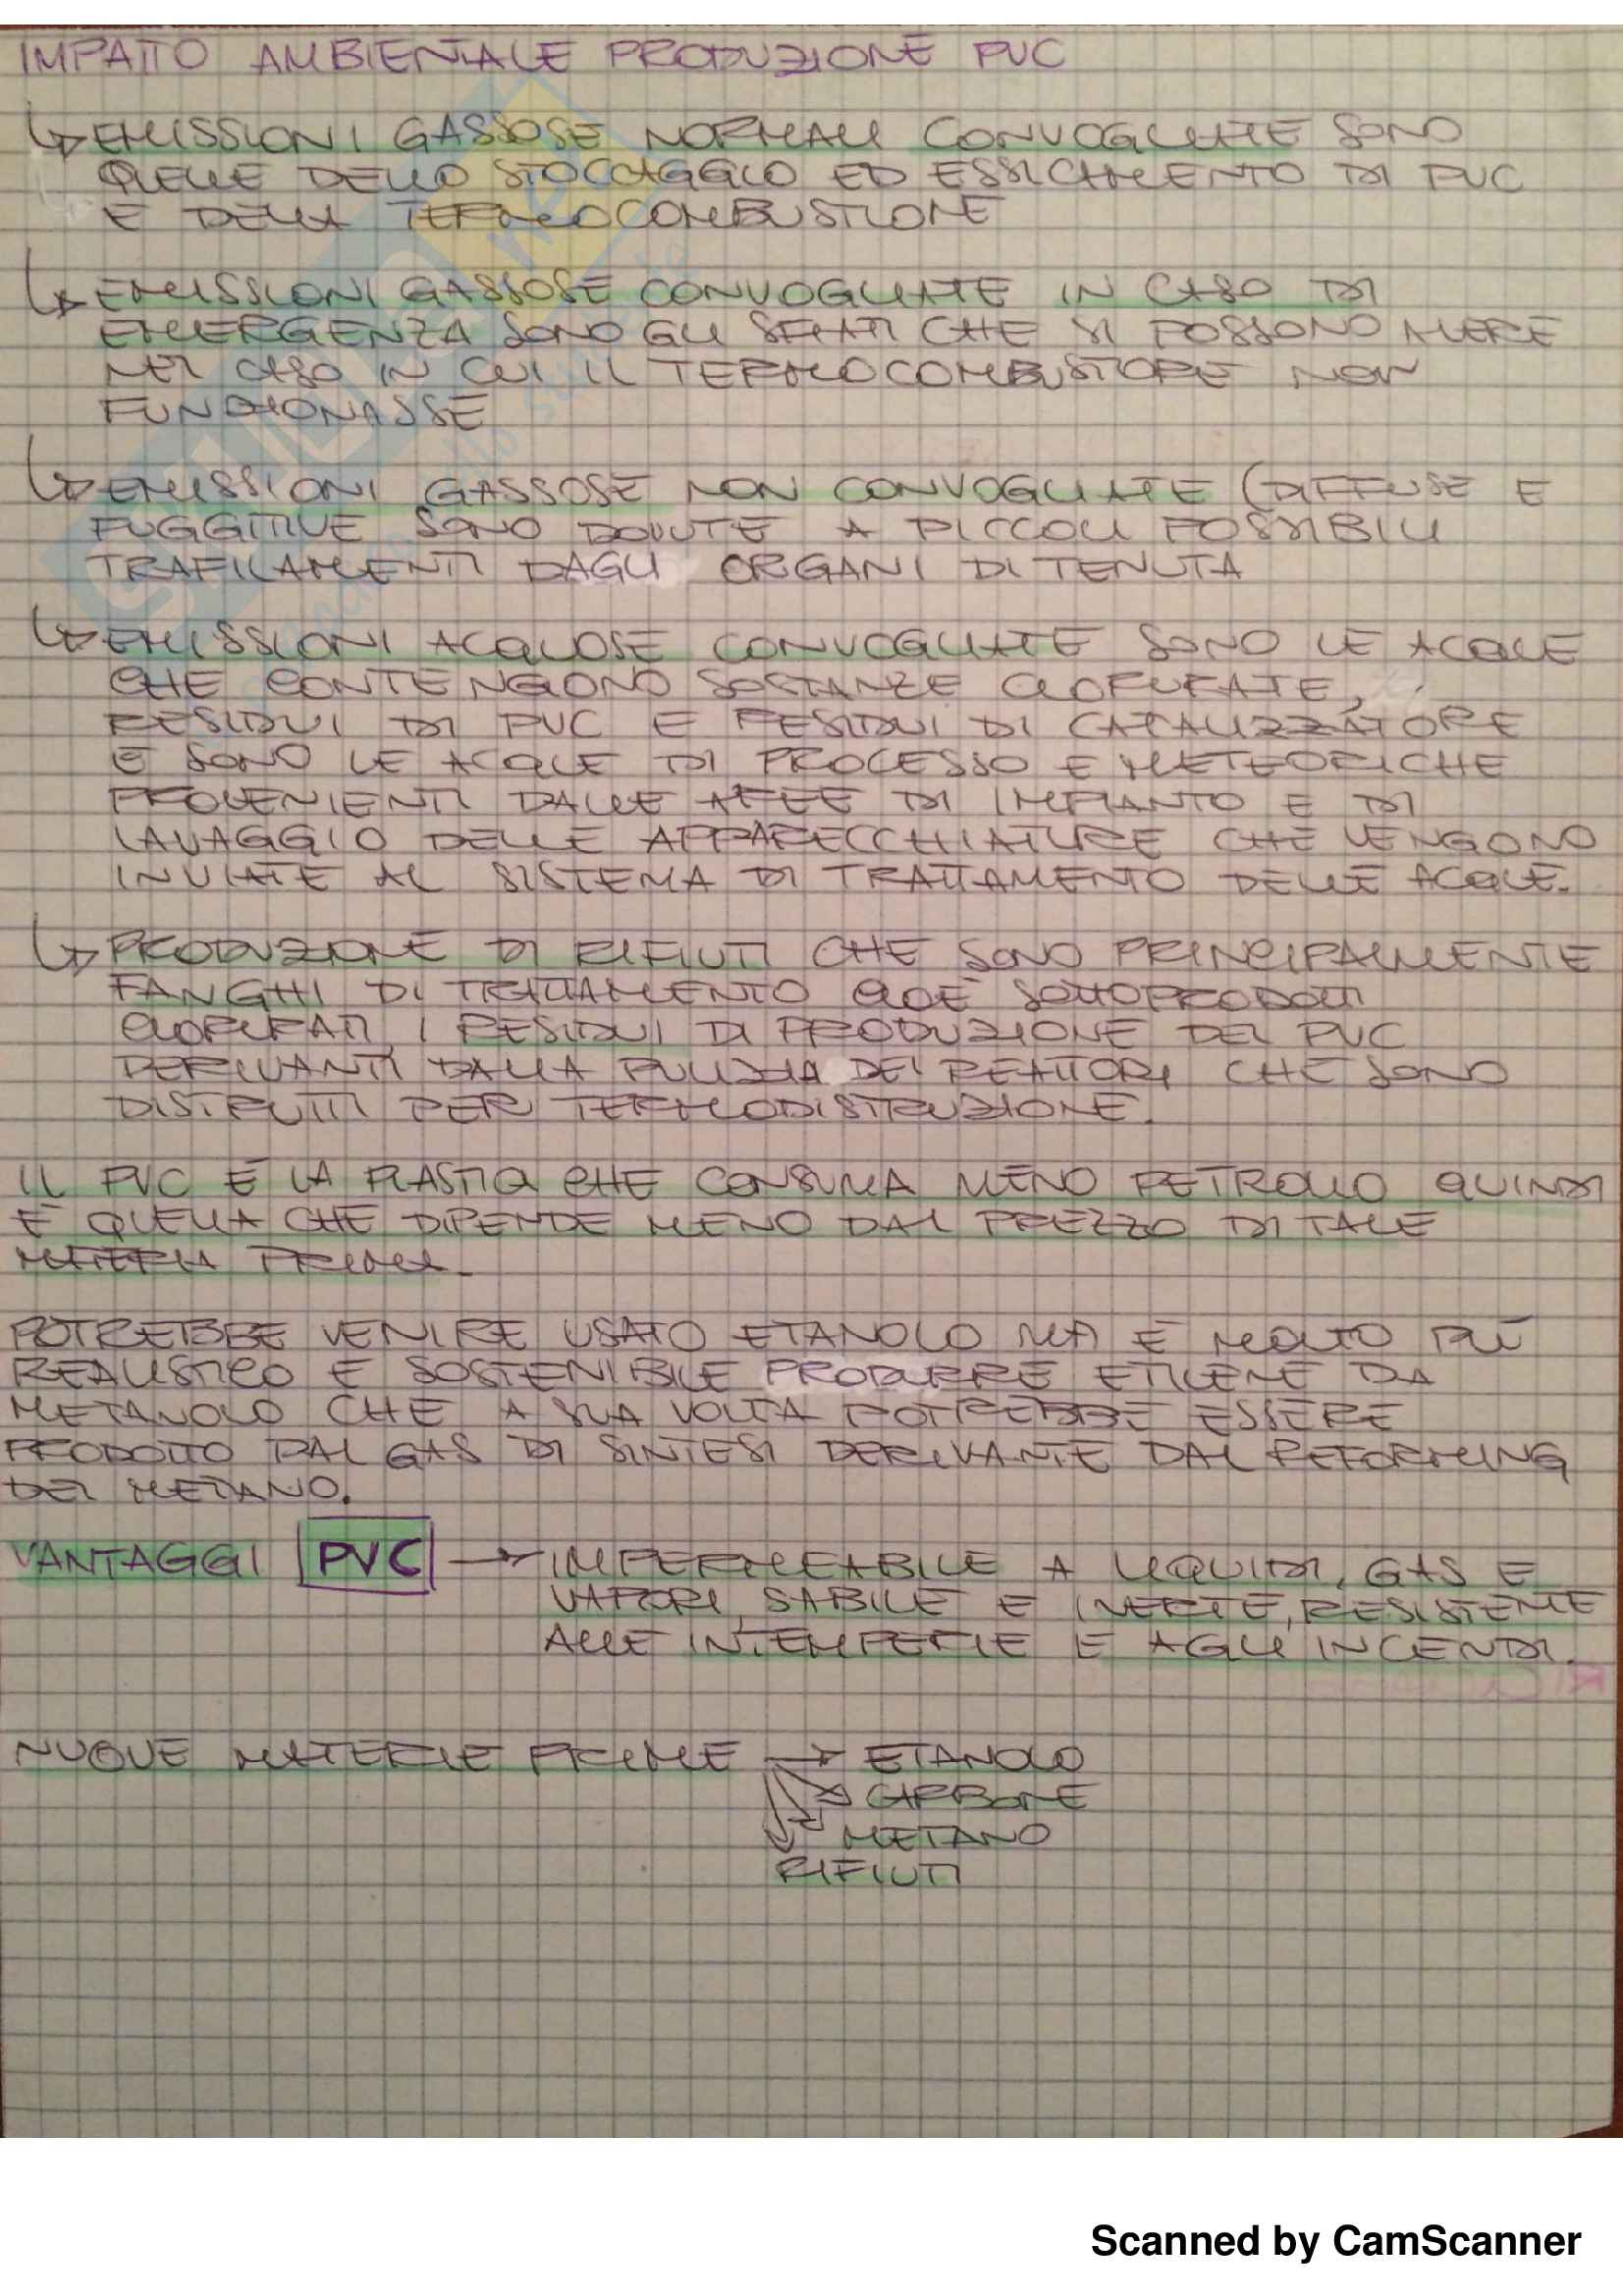 IMPATTO AMBIENTALE PRODUZIONE PVC
↳ EMISSIONI GASSOSE NORMALI CONVOGLIATE SONO
QUELLE DELLO STOCCAGGIO ED ESSICAMENTO DI PVC
E DELLA TERMOCOMBUSTIONE
↳ EMISSIONI GASSOSE CONVOGLIATE IN CASO DI
EMERGENZA SONO GLI SFIATI CHE SI POSSONO AVERE
NEL CASO IN CUI IL TERMOCOMBUSTORE NON
FUNZIONASSE
↳ EMISSIONI GASSOSE NON CONVOGLIATE (DIFFUSE E
FUGGITIVE SONO DOVUTE A PICCOLI POSSIBILI
TRAFILAMENTI DAGLI ORGANI DI TENUTA
↳ EMISSIONI ACQUOSE CONVOGLIATE SONO LE ACQUE
CHE CONTENGONO SOSTANZE CLORURATE,
RESIDUI DI PVC E RESIDUI DI CATALIZZATORE
E SONO LE ACQUE DI PROCESSO E METEORICHE
PROVENIENTI DALLE AREE DI IMPIANTO E DI
LAVAGGIO DELLE APPARECCHIATURE CHE VENGONO
INVIATE AL SISTEMA DI TRATTAMENTO DELLE ACQUE.
↳ PRODUZIONE DI RIFIUTI CHE SONO PRINCIPALMENTE
FANGHI DI TRATTAMENTO CIOÈ SOTTOPRODOTTI
CLORURATI, I RESIDUI DI PRODUZIONE DEL PVC
DERIVANTI DALLA PULIZIA DEI REATTORI CHE SONO
DISTRUTTI PER TERMODISTRUZIONE.
IL PVC È LA PLASTICA CHE CONSUMA MENO PETROLIO QUINDI
È QUELLA CHE DIPENDE MENO DAL PREZZO DI TALE
MATERIA PRIMA.
POTREBBE VENIRE USATO ETANOLO MA È MOLTO PIÙ
REALISTICO E SOSTENIBILE PRODURRE ETILENE DA
METANOLO CHE A SUA VOLTA POTREBBE ESSERE
PRODOTTO DAL GAS DI SINTESI DERIVANTE DAL REFORMING
DEL METANO.
VANTAGGI PVC → IMPERMEABILE A LIQUIDI, GAS E
VAPORI, SABILE E INERTE, RESISTENTE
ALLE INTEMPERIE E AGLI INCENDI.
NUOVE MATERIE PRIME → ETANOLO
CARBONE
METANO
RIFIUTI
Scanned by CamScanner